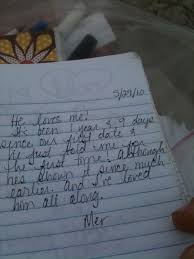 5/29/10
He loves me!
It's been 1 year & 9 days
since our first date &
he just told me for
the first time. Although
hes shown it since much
earlier. And I've loved
him all along.
Mer